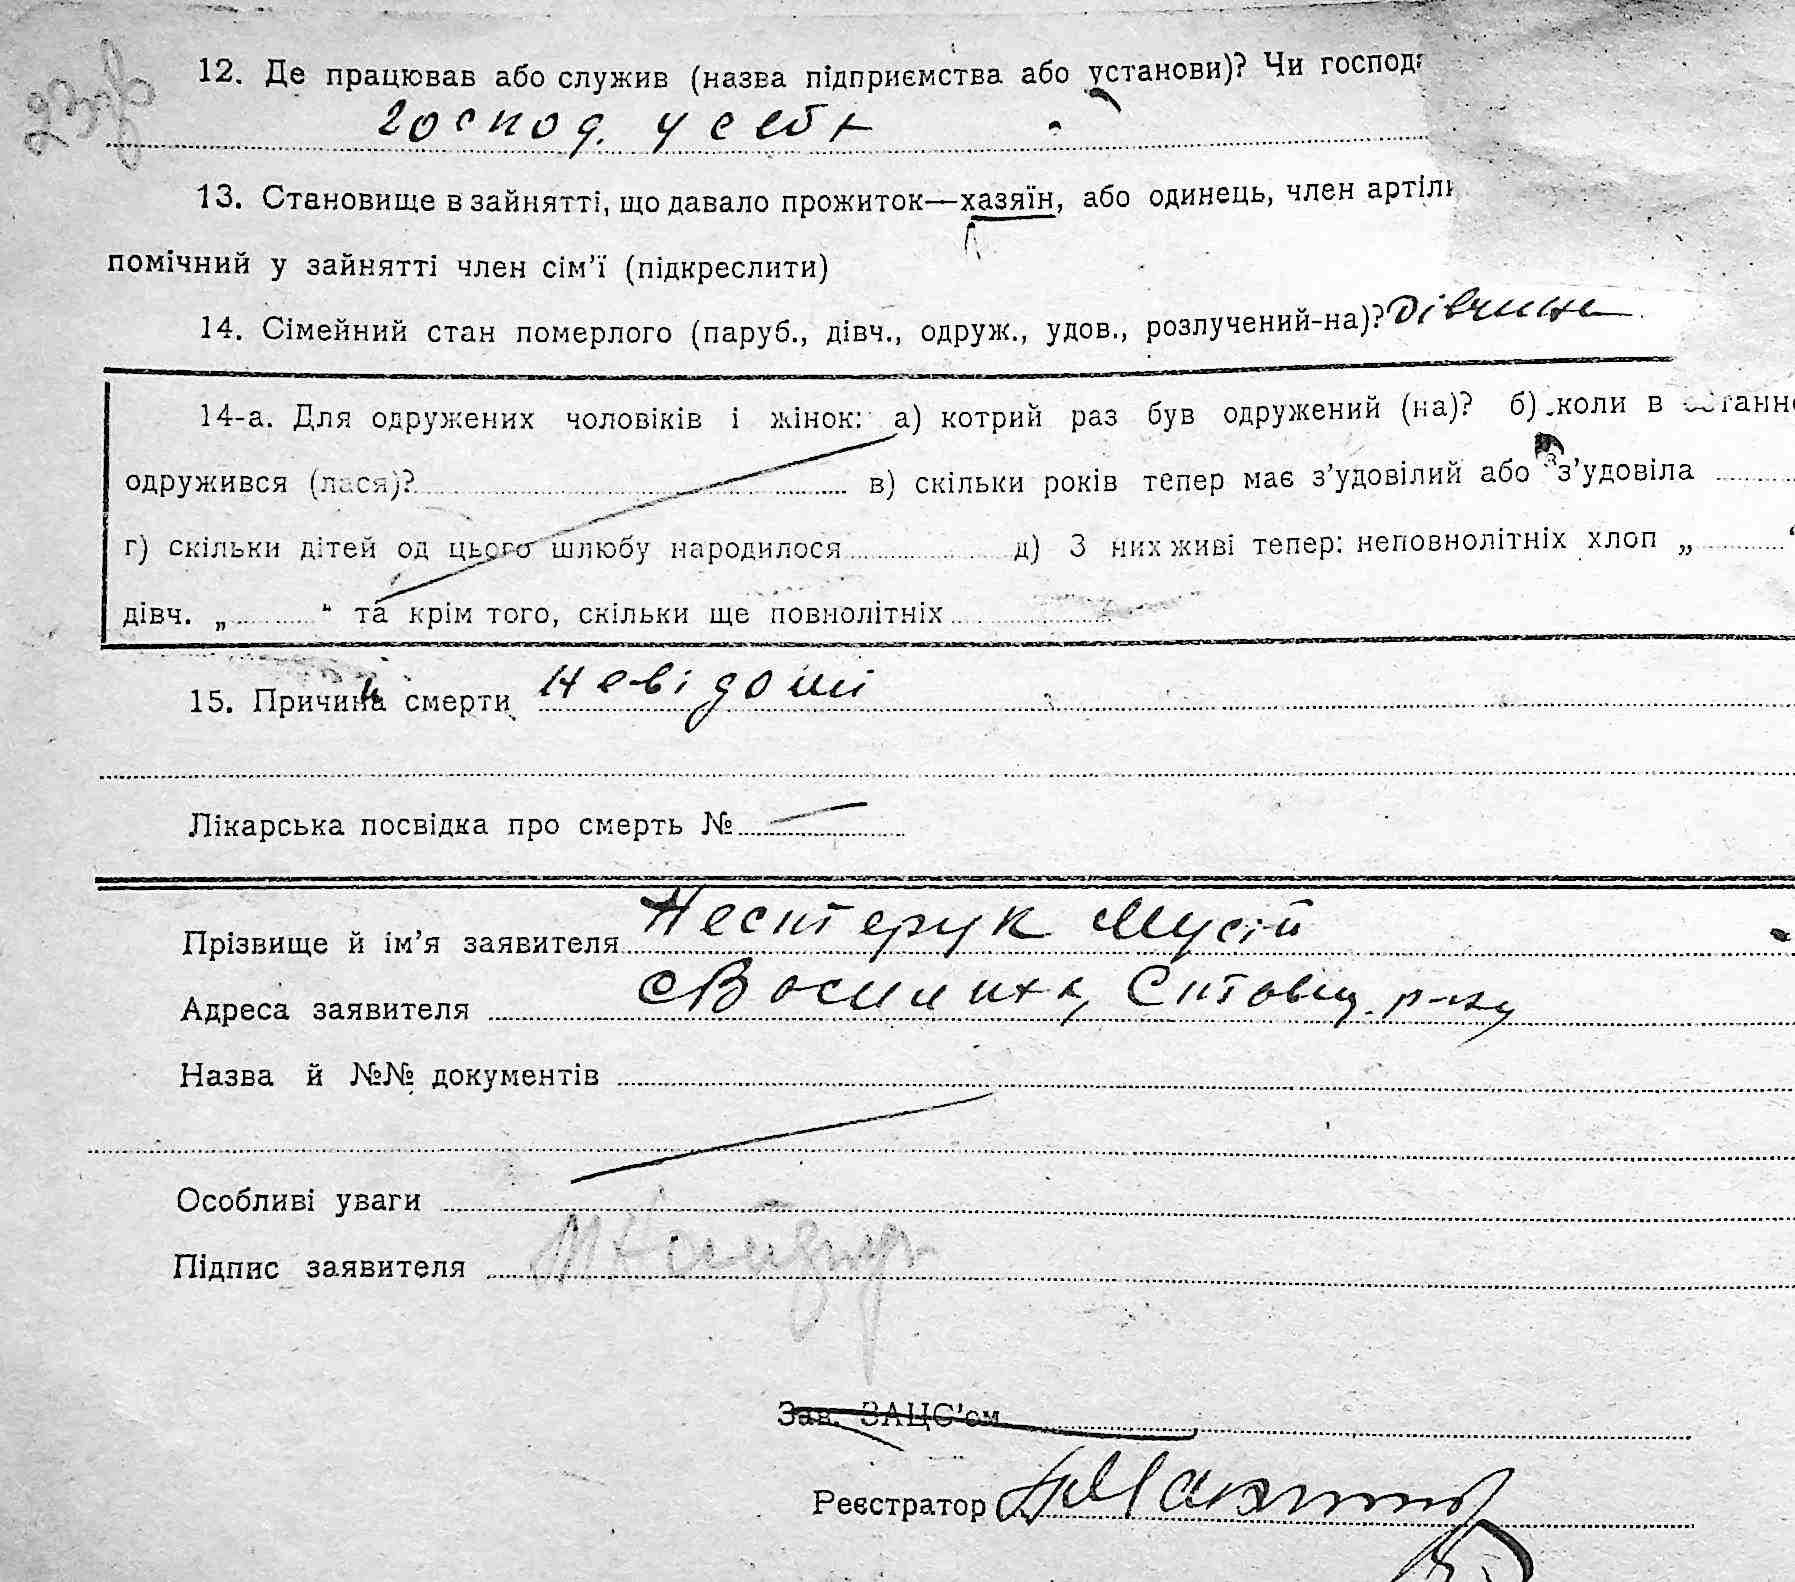 12. Де працював або служив (назва підприємства або установи)? Чи господ
господ. у себе
13. Становище в зайнятті, що давало прожиток—хазяїн, або одинець, член артіл
помічний у зайнятті член сім’ї (підкреслити)
14. Сімейний стан померлого (паруб., дівч., одруж., удов., розлучений-на)? дівчина
14-а. Для одружених чоловіків і жінок: а) котрий раз був одружений (на)? б) коли в останн
одружився (лася)? в) скільки років тепер має з’удовілий або з’удовіла
г) скільки дітей од цього шлюбу народилося д) З них живі тепер: неповнолітніх хлоп „ “
дівч. „ “ та крім того, скільки ще повнолітніх
15. Причини смерти невідомі
Лікарська посвідка про смерть №
Прізвище й ім’я заявителя Нестерук Мусій
Адреса заявителя с Василиха, Ситовец. р-ну
Назва й №№ документів
Особливі уваги
Підпис заявителя
Зав. ЗАЦС’ом
Реєстратор